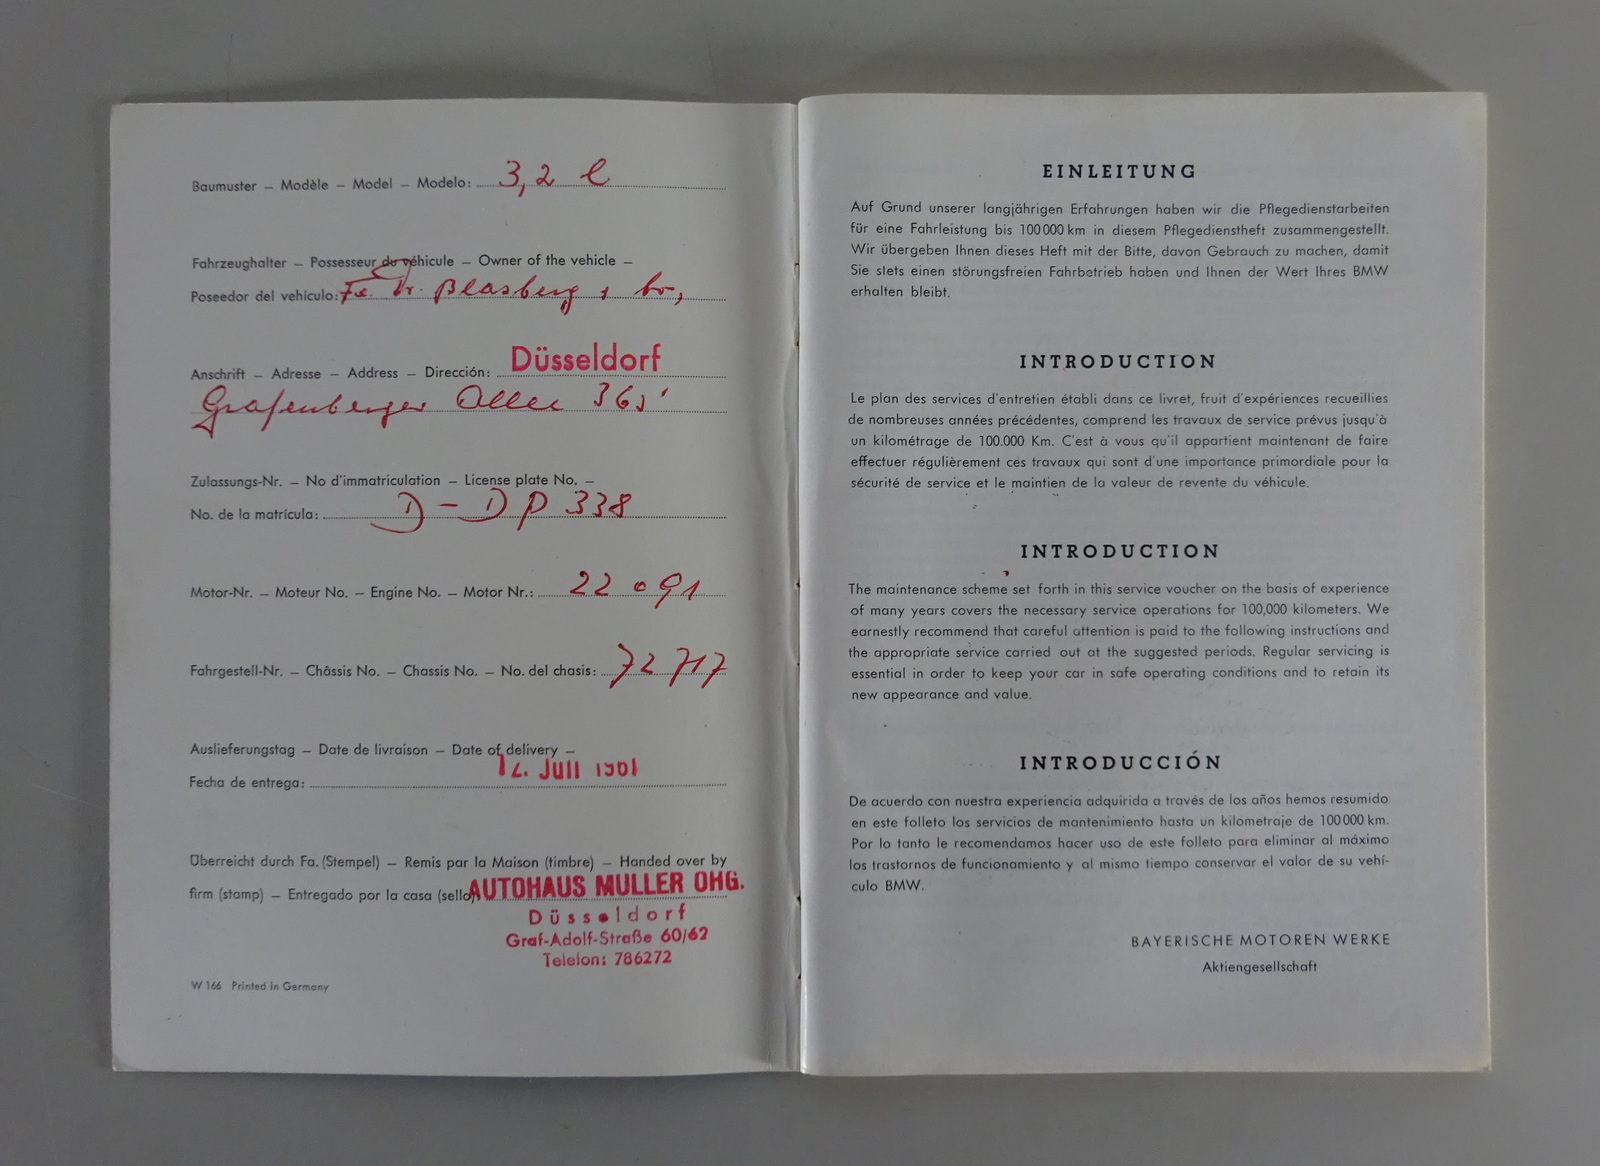 Baumuster – Modèle – Model – Modelo: 3,2 l
Fahrzeughalter – Possesseur du véhicule – Owner of the vehicle –
Poseedor del vehículo: Fa. Dr. Blasberg
Anschrift – Adresse – Address – Dirección: Düsseldorf
Grafenberger Allee
Zulassungs-Nr. – No d'immatriculation – License plate No. –
No. de la matrícula: D – DP 338
Motor-Nr. – Moteur No. – Engine No. – Motor Nr.: 22 091
Fahrgestell-Nr. – Châssis No. – Chassis No. – No. del chasis: 72 717
Auslieferungstag – Date de livraison – Date of delivery –
Fecha de entrega: Juli
Überreicht durch Fa. (Stempel) – Remis par la Maison (timbre) – Handed over by
firm (stamp) – Entregado por la casa (sello): AUTOHAUS MÜLLER OHG.
Düsseldorf
Graf-Adolf-Straße 60/62
Telefon: 786272
W 166 Printed in Germany
EINLEITUNG
Auf Grund unserer langjährigen Erfahrungen haben wir die Pflegedienstarbeiten
für eine Fahrleistung bis 100 000 km in diesem Pflegedienstheft zusammengestellt.
Wir übergeben Ihnen dieses Heft mit der Bitte, davon Gebrauch zu machen, damit
Sie stets einen störungsfreien Fahrbetrieb haben und Ihnen der Wert Ihres BMW
erhalten bleibt.
INTRODUCTION
Le plan des services d'entretien établi dans ce livret, fruit d'expériences recueillies
de nombreuses années précédentes, comprend les travaux de service prévus jusqu'à
un kilométrage de 100.000 Km. C'est à vous qu'il appartient maintenant de faire
effectuer régulièrement ces travaux qui sont d'une importance primordiale pour la
sécurité de service et le maintien de la valeur de revente du véhicule.
INTRODUCTION
The maintenance scheme set forth in this service voucher on the basis of experience
of many years covers the necessary service operations for 100,000 kilometers. We
earnestly recommend that careful attention is paid to the following instructions and
the appropriate service carried out at the suggested periods. Regular servicing is
essential in order to keep your car in safe operating conditions and to retain its
new appearance and value.
INTRODUCCIÓN
De acuerdo con nuestra experiencia adquirida a través de los años hemos resumido
en este folleto los servicios de mantenimiento hasta un kilometraje de 100 000 km.
Por lo tanto le recomendamos hacer uso de este folleto para eliminar al máximo
los trastornos de funcionamiento y al mismo tiempo conservar el valor de su vehí-
culo BMW.
BAYERISCHE MOTOREN WERKE
Aktiengesellschaft